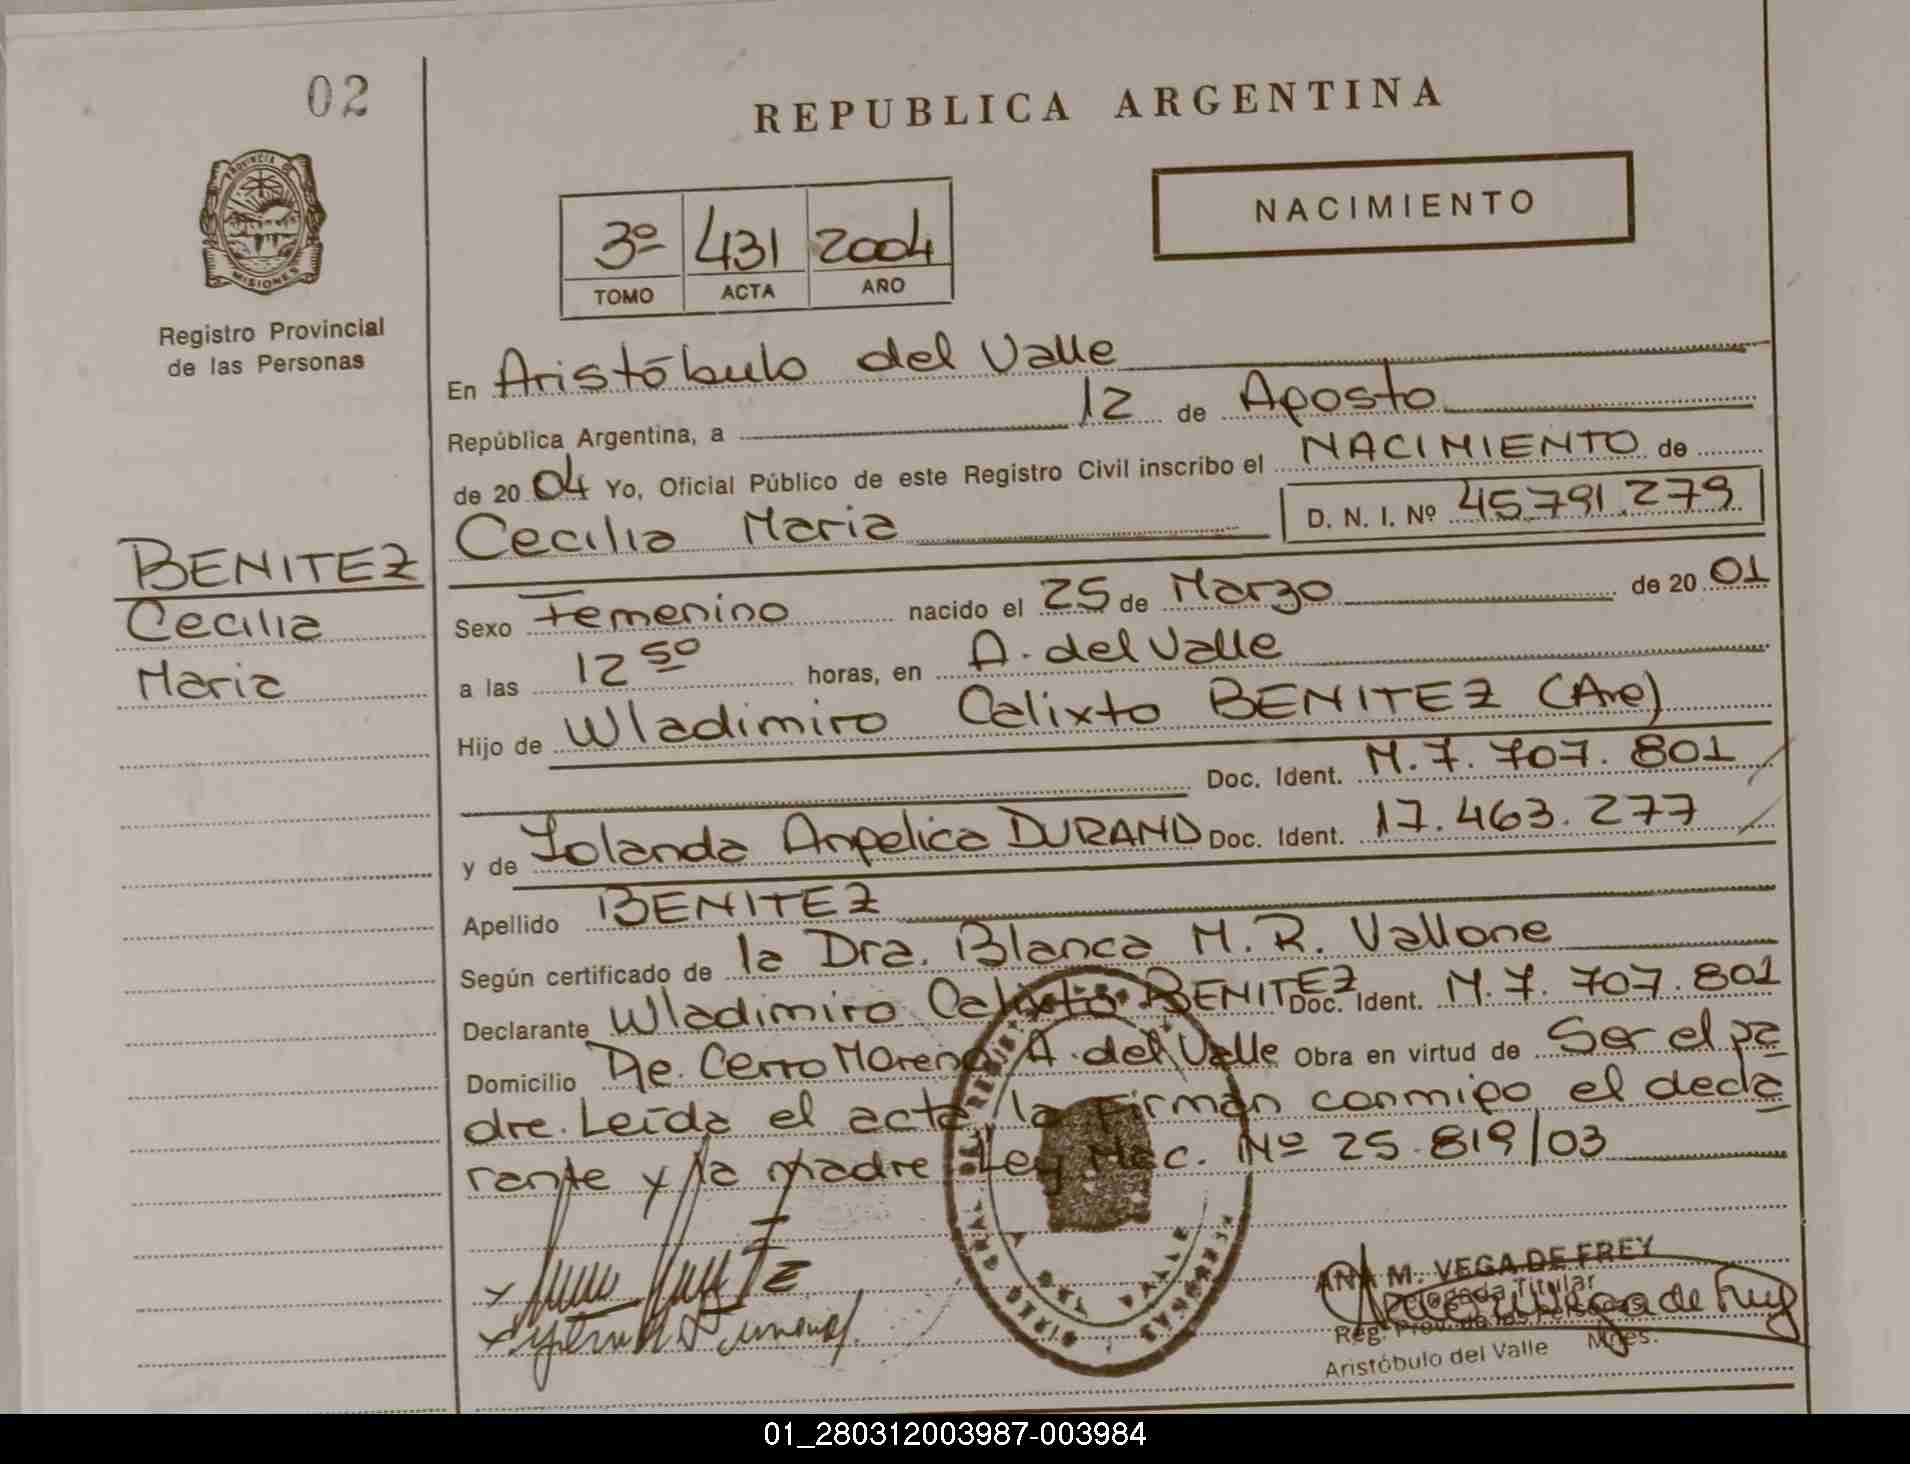 02
REPUBLICA ARGENTINA
PROVINCIA DE
MISIONES
Registro Provincial
de las Personas
NACIMIENTO
3º 431 2004
TOMO ACTA AÑO
En Aristóbulo del Valle
República Argentina, a 12 de Agosto
de 20 04 Yo, Oficial Público de este Registro Civil inscribo el NACIMIENTO de
Cecilia Maria D. N. I. Nº 45.791.279
BENITEZ
Cecilia
Maria
Sexo Femenino nacido el 25 de Marzo de 20 01
a las 12 50 horas, en A. del Valle
Hijo de Wladimiro Calixto BENITEZ (Arg)
Doc. Ident. M. 7. 707. 801
y de Iolanda Angelica DURAND Doc. Ident. 17. 463. 277
Apellido BENITEZ
Según certificado de la Dra. Blanca M. R. Vallone
Declarante Wladimiro Calixto BENITEZ Doc. Ident. M. 7. 707. 801
Domicilio Pje. Cerro Moreno A. del Valle Obra en virtud de Ser el pa
dre. Leída el acta, la firman conmigo el decla
rante y la madre Ley Nac. Nº 25.819/03
ANA M. VEGA DE FREY
Delegada Titular
Reg. Prov. de las Personas
Aristóbulo del Valle Mnes.
01_280312003987-003984